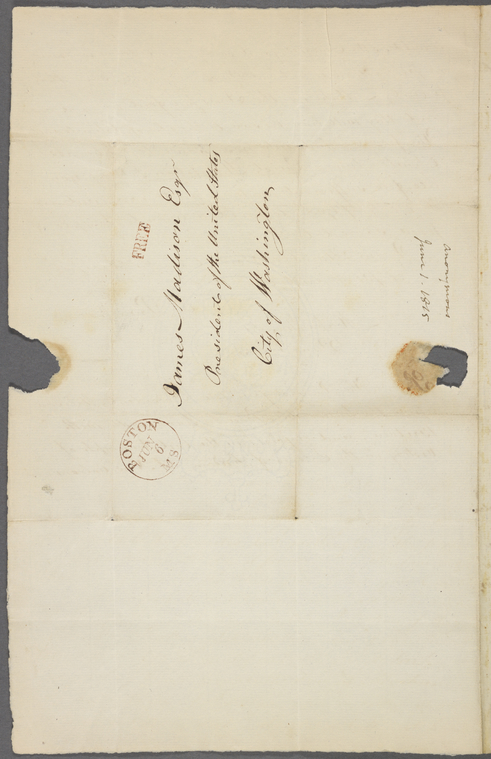 FREE
James Madison Esqr
President of the United States
City of Washington
BOSTON
JUN
6
MS
anonymous
June 1. 1815